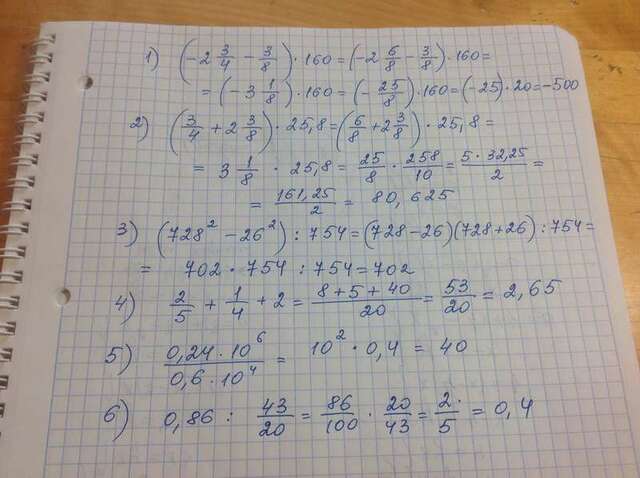 1) (-2 3/4 - 3/8) · 160 = (-2 6/8 - 3/8) · 160 =
= (-3 1/8) · 160 = (-25/8) · 160 = (-25) · 20 = -500
2) (3/4 + 2 3/8) · 25,8 = (6/8 + 2 3/8) · 25,8 =
= 3 1/8 · 25,8 = 25/8 · 258/10 = 5 · 32,25/2 =
= 161,25/2 = 80,625
3) (728² - 26²) : 754 = (728 - 26)(728 + 26) : 754 =
= 702 · 754 : 754 = 702
4) 2/5 + 1/4 + 2 = 8 + 5 + 40/20 = 53/20 = 2,65
5) 0,24 · 10⁶/0,6 · 10⁴ = 10² · 0,4 = 40
6) 0,86 : 43/20 = 86/100 · 20/43 = 2/5 = 0,4